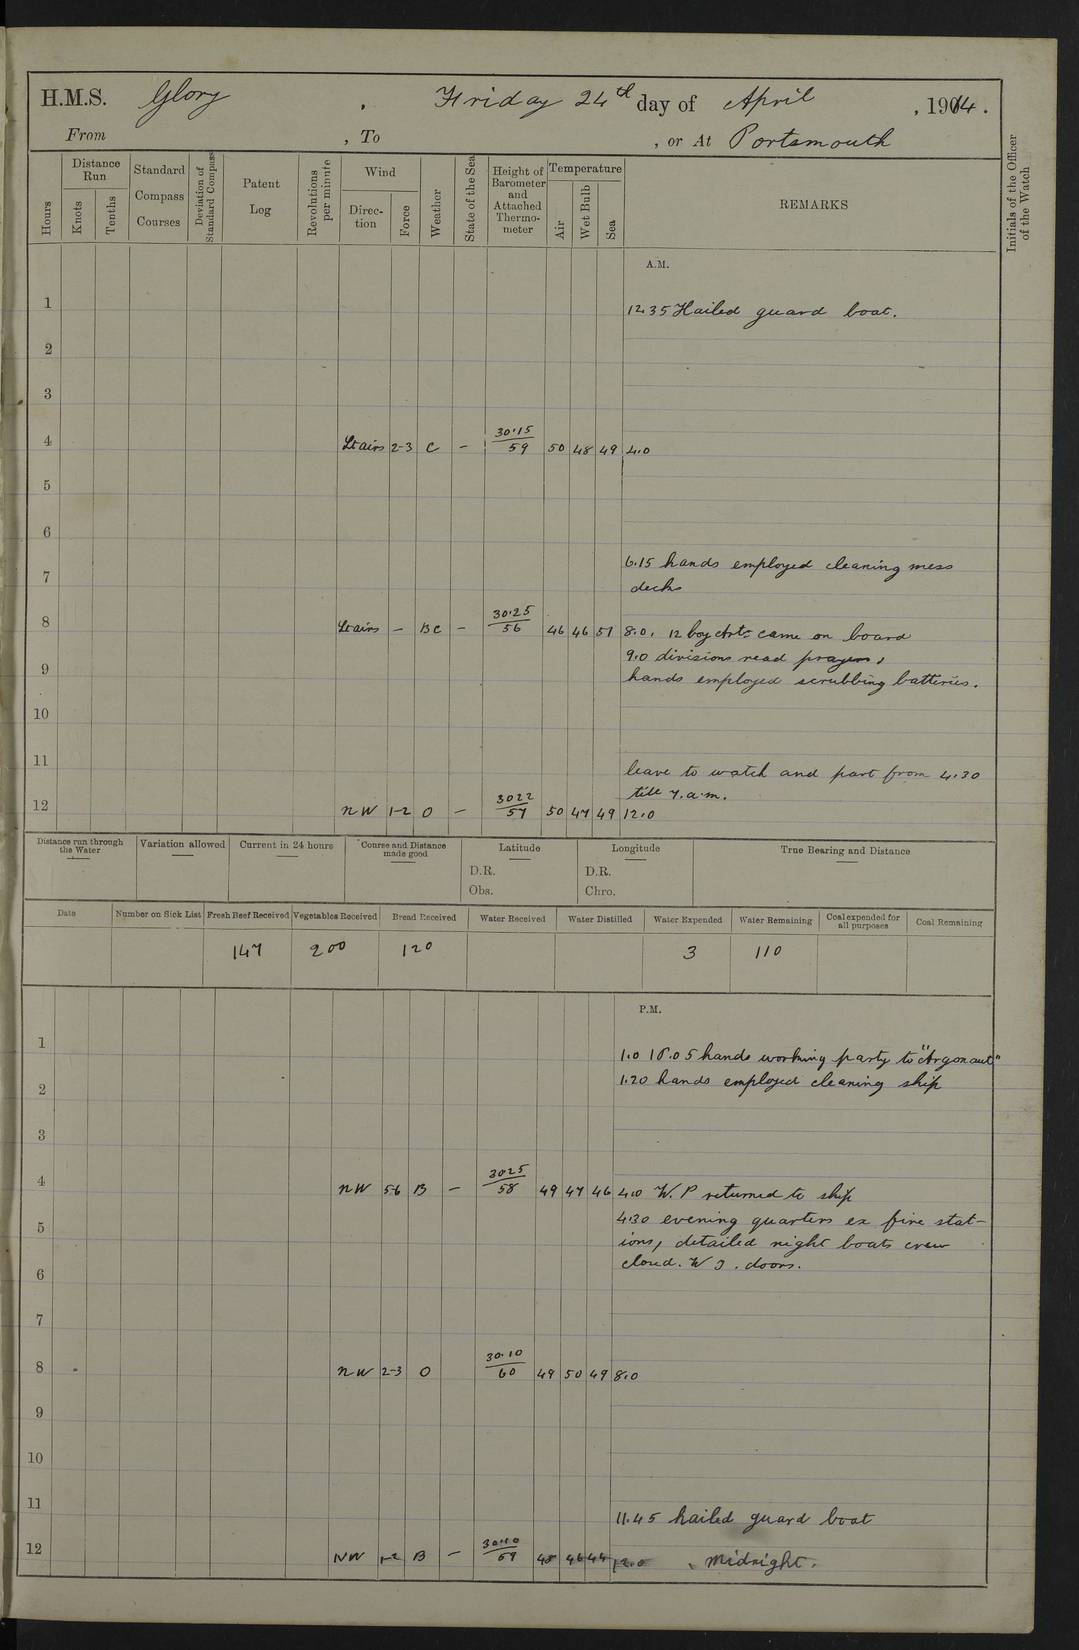 H.M.S. Glory , Friday 24th day of April , 1914.
From , To , or At Portsmouth
Hours
Distance Run
Knots
Tenths
Standard Compass Courses
Deviation of Standard Compass
Patent Log
Revolutions per minute
Wind
Direction
Force
Weather
State of the Sea
Height of Barometer and Attached Thermometer
Temperature
Air
Wet Bulb
Sea
REMARKS
Initials of the Officer of the Watch
A.M.
1 12.35 Hailed guard boat.
2
3
4 Lt airs 2-3 C – 30.15/59 50 48 49 4.0
5
6
6.15 hands employed cleaning mess
7 decks
8 Lt airs – BC – 30.25/56 46 46 51 8.0. 12 boy Arts came on board
9.0 divisions read prayers,
9 hands employed scrubbing batteries.
10
11
leave to watch and part from 4.30
till 7.a.m.
12 NW 1-2 O – 3022/57 50 47 49 12.0
Distance run through the Water
Variation allowed
Current in 24 hours
Course and Distance made good
Latitude
D.R.
Obs.
Longitude
D.R.
Chro.
True Bearing and Distance
Date Number on Sick List Fresh Beef Received Vegetables Received Bread Received Water Received Water Distilled Water Expended Water Remaining Coal expended for all purposes Coal Remaining
147 200 120 3 110
P.M.
1
1.0 hands working party to "Argonaut"
2 1.20 hands employed cleaning ship
3
4 NW 5-6 B – 3025/58 49 47 46 4.0 W.P returned to ship
4.30 evening quarters ex fire stat-
5 ions, detailed night boats crew
closed. W T. doors.
6
7
8 NW 2-3 O 30.10/60 49 50 49 8.0
9
10
11
11.45 hailed guard boat
12 NW 1-2 B – 30.10/59 48 46 44 12.0 midnight.